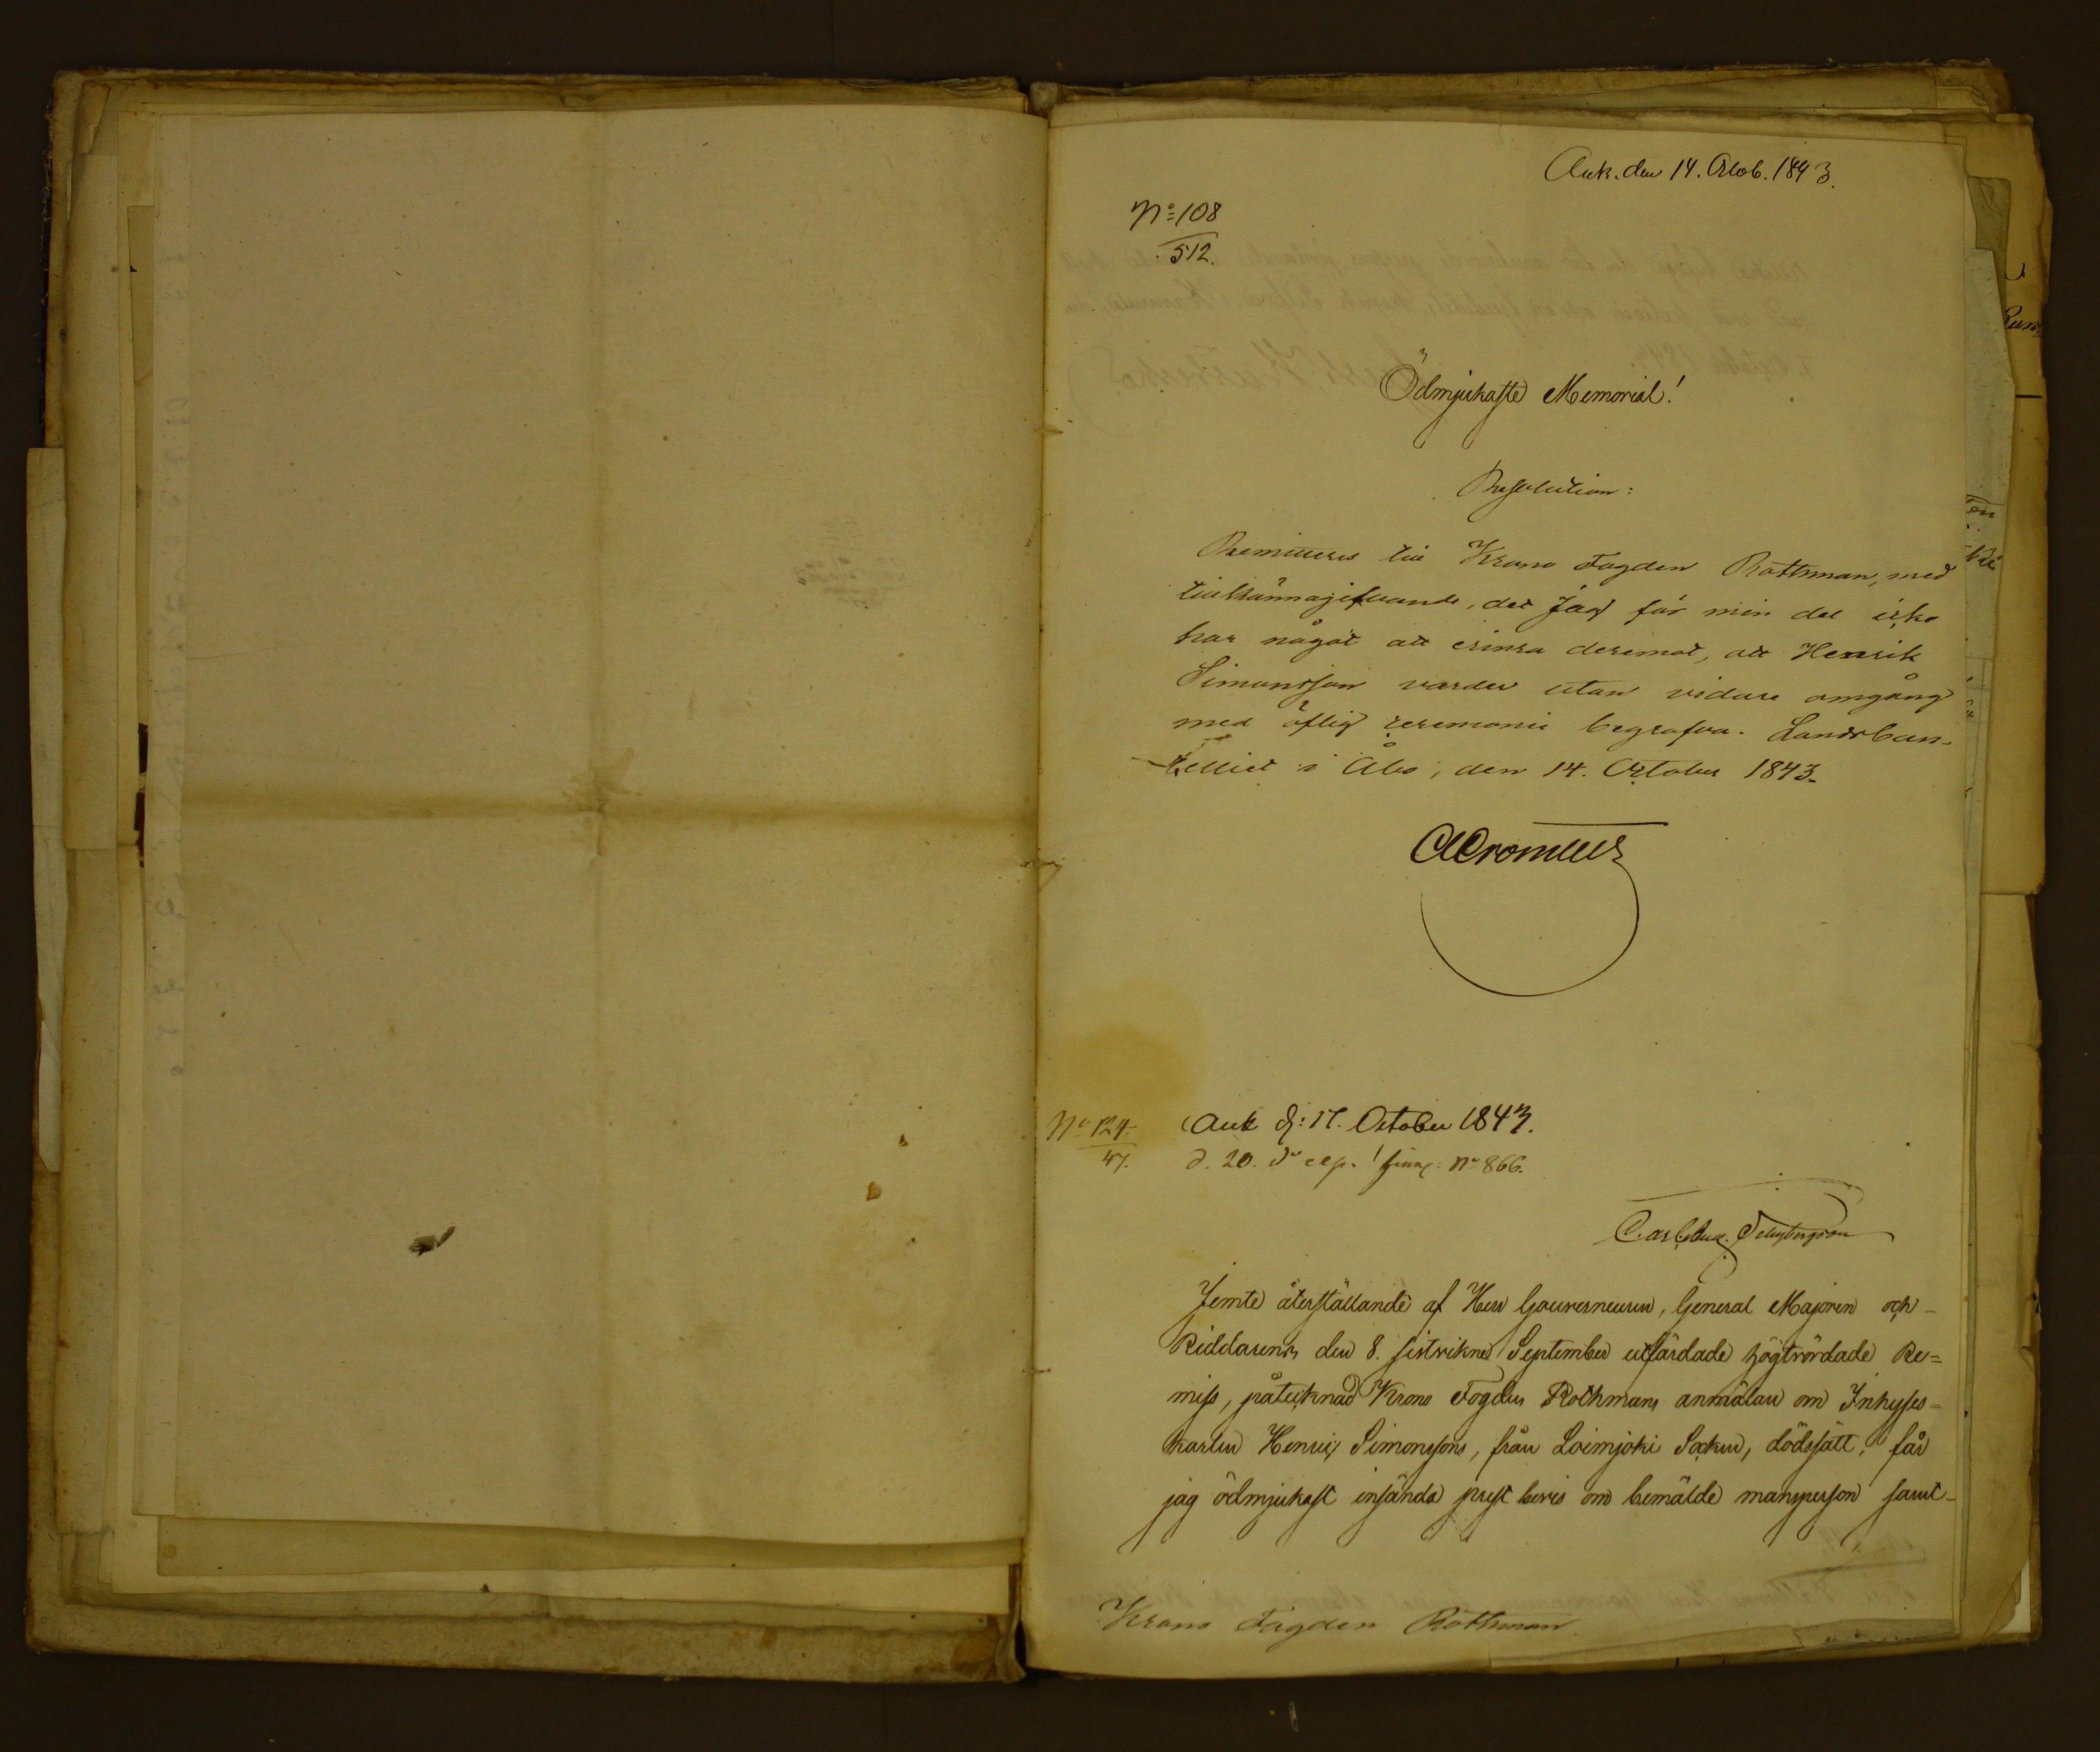 Ank. den 14. Octob. 1843.
No 108
512.
Ödmjukaste Memorial!
Resolution:
Remitteras till Krono Fogden Rothman, med
tillkännagifvande, det Jag för min del icke
har något att erinra deremot, att Henrik
Simonsson varder utan vidare omgång
med öflig ceremonie begrafven. Landscan-
celliet i Åbo, den 14. October 1843.
No 124.
47.
Ank d: 17. October 1843.
d. 20. do exp. No 866.
Carl Aug.
Jemte återställande af Herr Gouverneuren, General Majoren och
Riddarens den 8. sistvikne September utfärdade högtvördade Re=
miss, påtecknad Krono Fogden Rothmans anmälan om Inhyses=
karlen Henric Simonssons, från Loimjoki Socken, dödssätt, får
jag ödmjukast insända prest bevis om bemälde mansperson samt
Krono Fogden Rothman